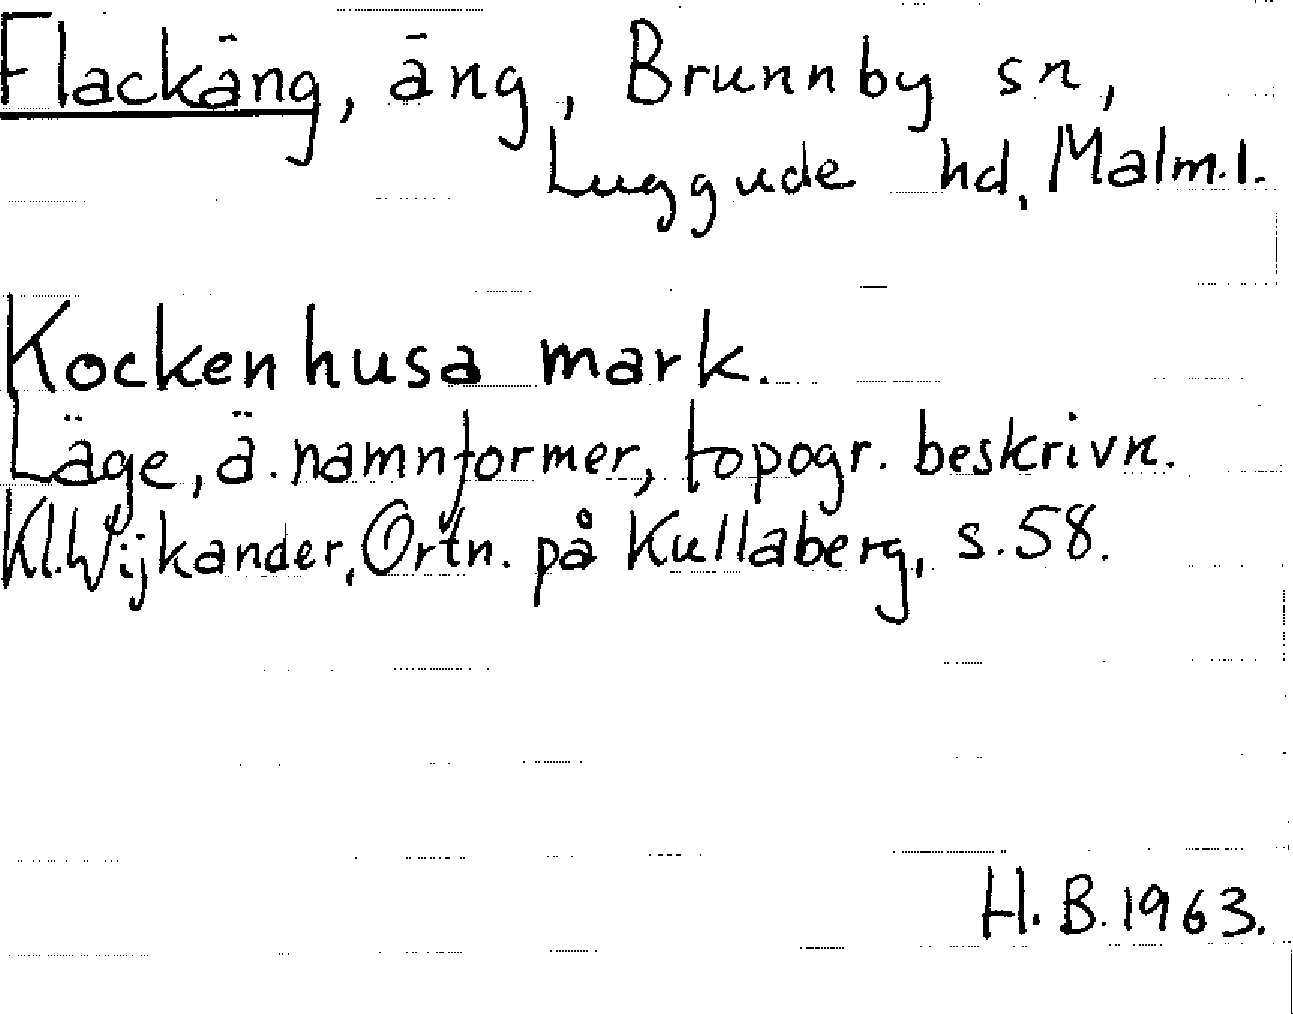 Flackäng, äng, Brunnby sn,
Luggude hd, Malm.l.
Kockenhusa mark.
Läge, ä. namnformer, topogr. beskrivn.
Kl. Wijkander, Ortn. på Kullaberg, s. 58.
H. B. 1963.